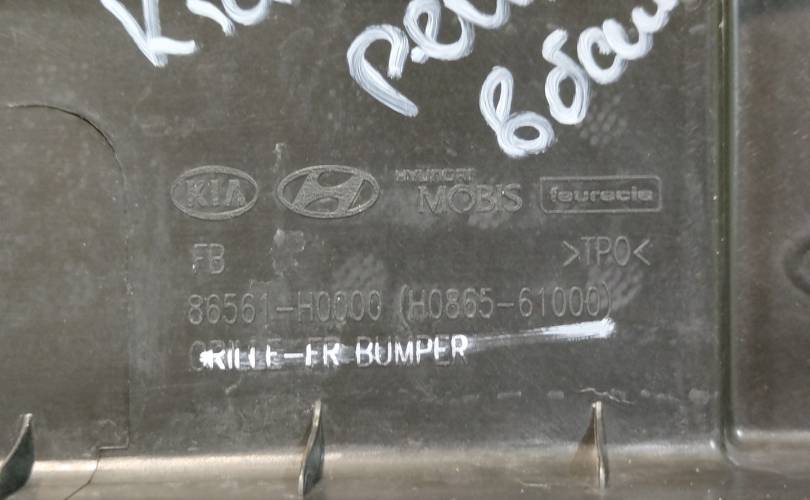 KIA HYUNDAI MOBIS faurecia
FB >TPO<
86561-H0000 (H0865-61000)
GRILLE-FR BUMPER